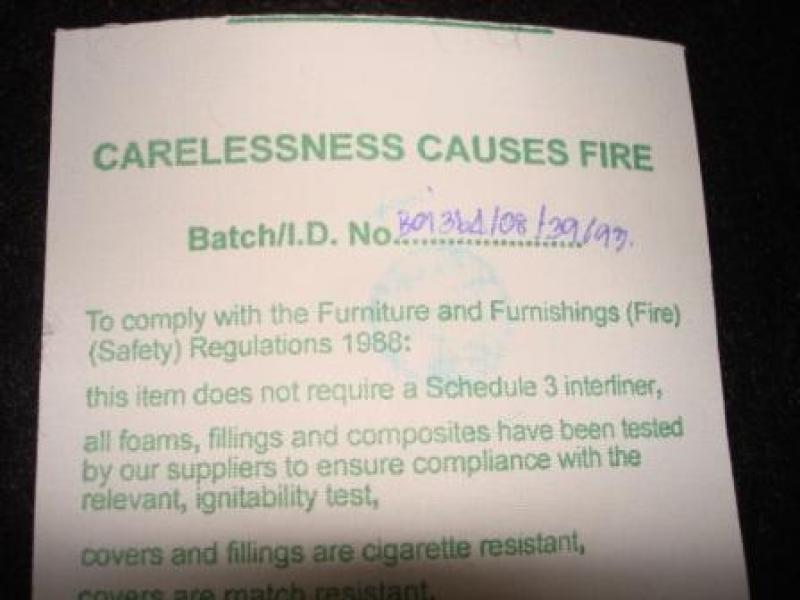 CARELESSNESS CAUSES FIRE
Batch/I.D. No.
To comply with the Furniture and Furnishings (Fire)
(Safety) Regulations 1988:
this item does not require a Schedule 3 interliner,
all foams, fillings and composites have been tested
by our suppliers to ensure compliance with the
relevant, ignitability test,
covers and fillings are cigarette resistant,
covers are match resistant.